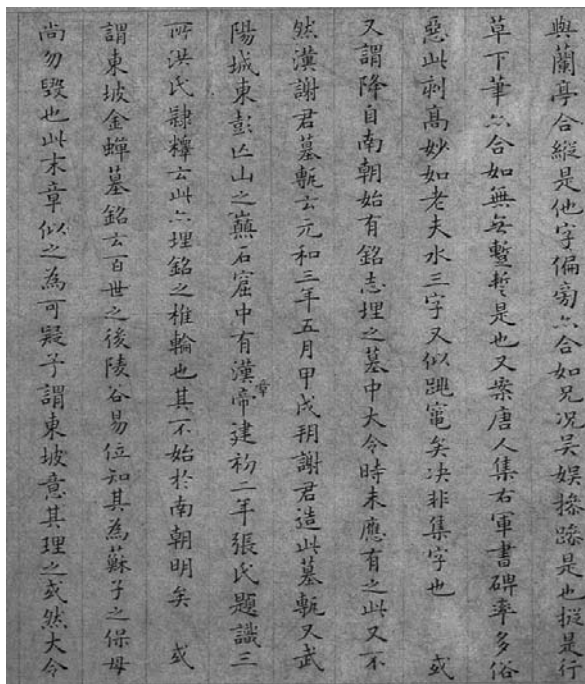 與蘭亭合縱是他字偏旁亦合如兄况吴娱操躁是也摐是行
草下筆亦合如無无蹔暫是也又案唐人集右軍書碑率多俗
惡此刻高妙如老夫水三字又似跳竄矣决非集字也 或
又謂降自南朝始有銘志埋之墓中大令時未應有之此又不
然漢謝君墓甎云元和三年五月甲戌朔謝君造此墓甎又武
陽城東彭亡山之巔石窟中有漢章帝建初二年張氏題識三
所洪氏隷釋云此亦埋銘之椎輪也其不始於南朝明矣 或
謂東坡金蟬墓銘云百世之後陵谷易位知其為蘇子之保母
尚勿毀也此末章似之為可疑予謂東坡意其理之或然大令